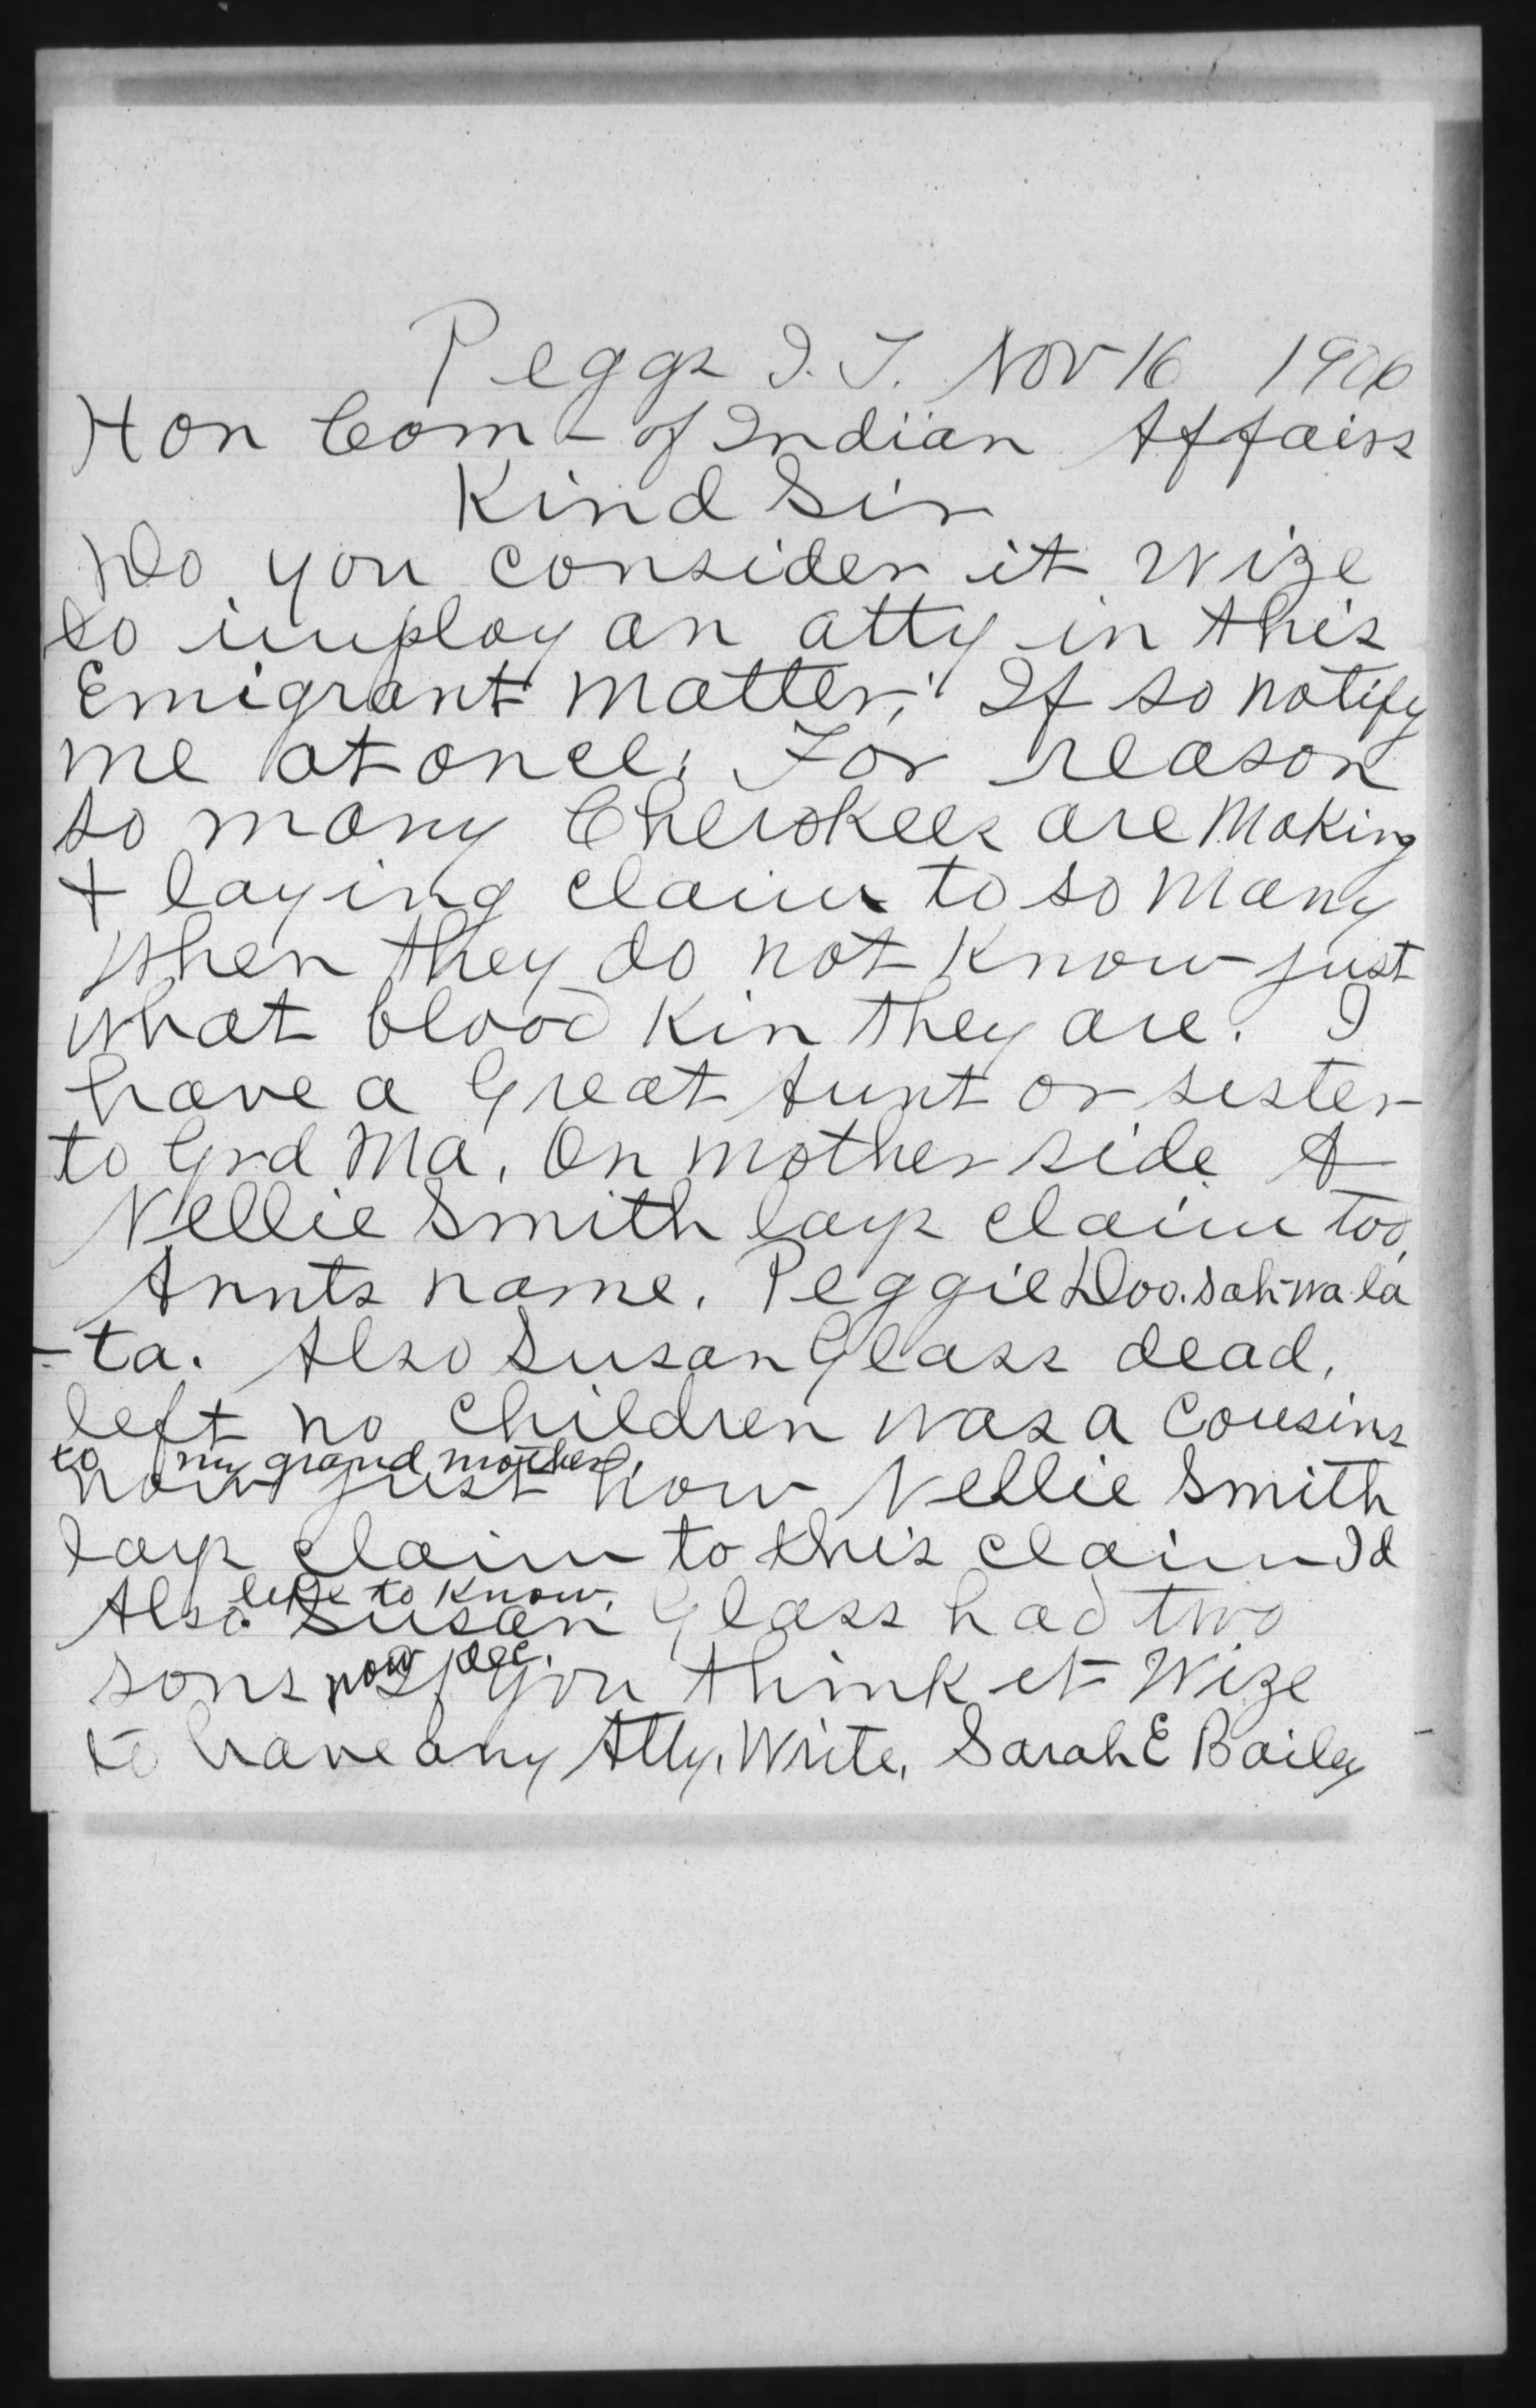 Peggs I.T. Nov 16 1906
Hon Com- of Indian Affairs
Kind Sir
Do you consider it wize
to imploy an atty in this
Emigrant matter; If so notify
me at once. For reason
so many Cherokees are Making
+ laying claim to so many
when they do not know just
what blood kin they are. I
have a Great Aunt or sister
to Grd Ma, On mother side &
Nellie Smith lays claim too,
Aunts name. Peggie Doo.sah-wa la
-ta. Also Susan Glass dead,
left no children was a cousins
to my grand mother.
now just how Nellie Smith
lays claim to this claim Id
like to know.
Also Susan Glass had two
sons now dec.
If you think it Wize
to have any Atty, Write, Sarah E Bailey